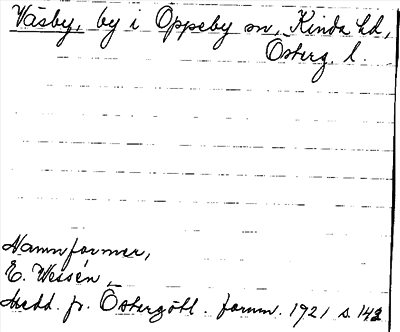 Väsby, by i Oppeby sn, Kinda hd,
Österg. l.
Namnformer,
E. Wessén
Medd. fr. Östergötl. fornm. 1921 s. 142